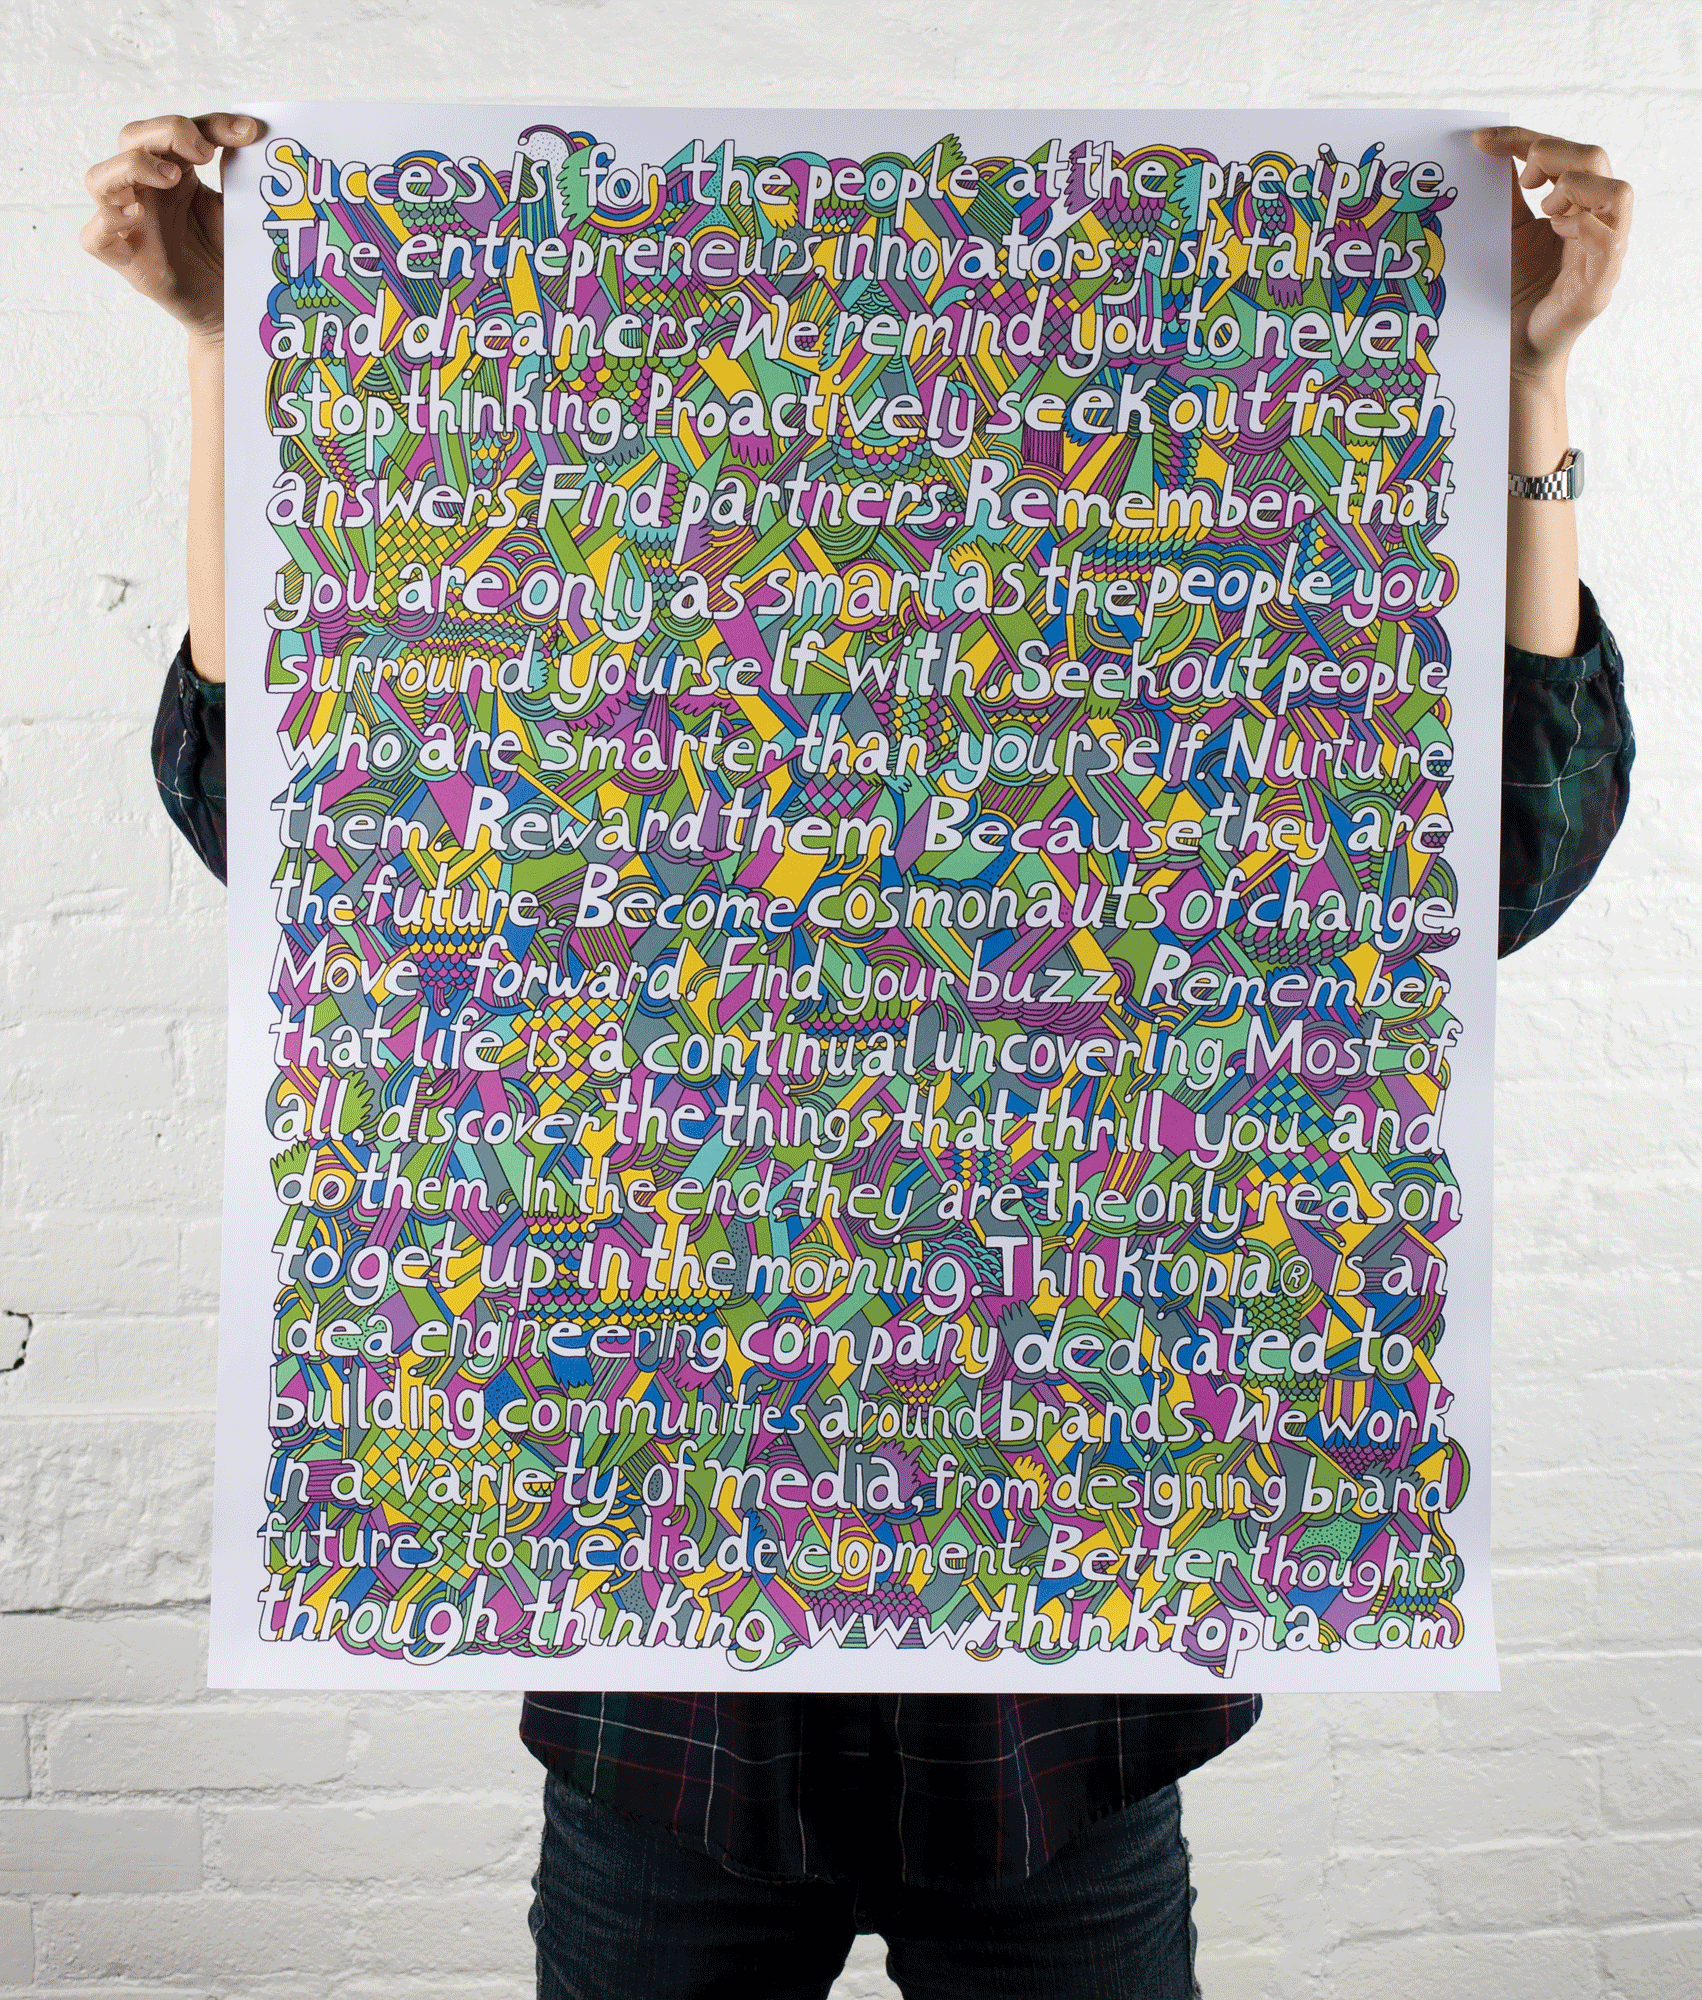 Success is for the people at the precipice.
The entrepreneurs, innovators, risk takers,
and dreamers. We remind you to never
stop thinking. Proactively seek out fresh
answers. Find partners. Remember that
you are only as smart as the people you
surround yourself with. Seek out people
who are smarter than yourself. Nurture
them. Reward them. Because they are
the future. Become cosmonauts of change.
Move forward. Find your buzz. Remember
that life is a continual uncovering. Most of
all, discover the things that thrill you and
do them. In the end, they are the only reason
to get up in the morning. Thinktopia® is an
idea engineering company dedicated to
building communities around brands. We work
in a variety of media, from designing brand
futures to media development. Better thoughts
through thinking. www.thinktopia.com